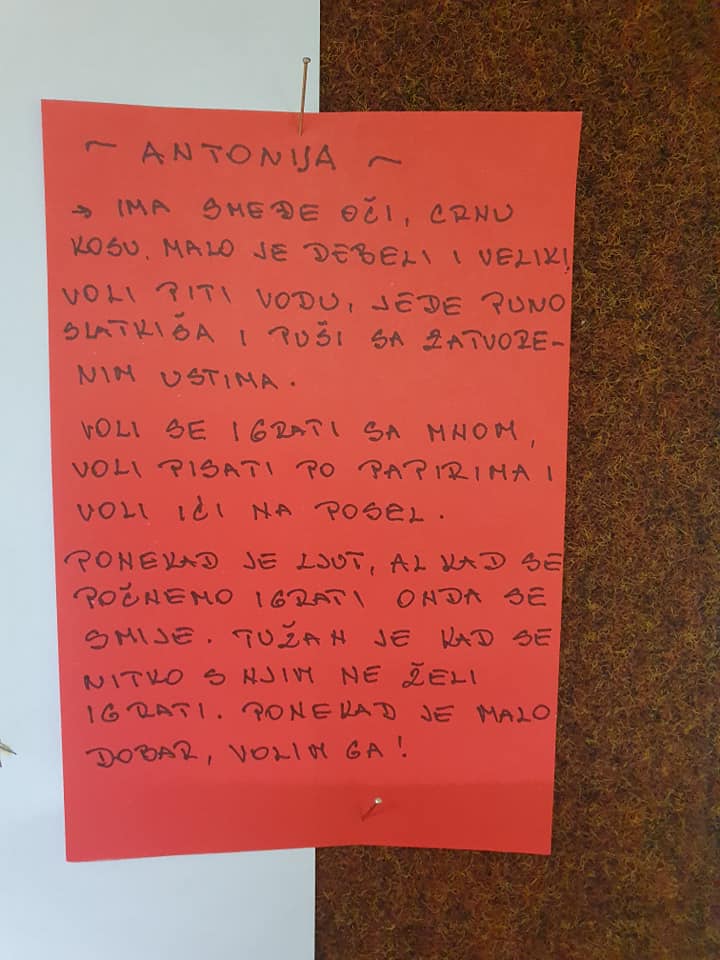 ~ ANTONIJA ~
→ IMA SMEĐE OČI, CRNU
KOSU. MALO JE DEBELI I VELIKI,
VOLI PITI VODU, JEDE PUNO
SLATKIŠA I PUŠI SA ZATVORE-
NIM USTIMA.
VOLI SE IGRATI SA MNOM,
VOLI PISATI PO PAPIRIMA I
VOLI IĆI NA POSEL.
PONEKAD JE LJUT, AL KAD SE
POČNEMO IGRATI ONDA SE
SMIJE. TUŽAN JE KAD SE
NITKO S NJIM NE ŽELI
IGRATI. PONEKAD JE MALO
DOBAR, VOLIM GA!